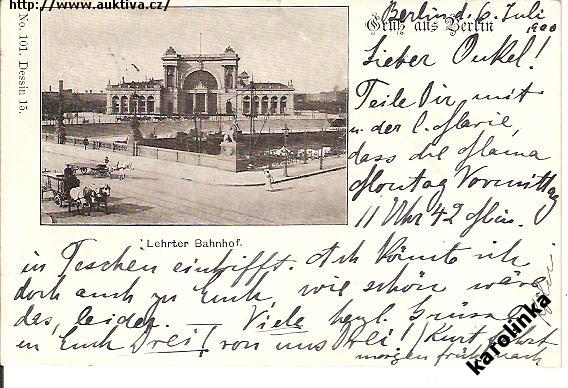 http://www.auktiva.cz/
No. 101. Dessin 15.
Gruß aus Berlin
Berlin d. 6. Juli
1900
Lieber Onkel!
Teile Dir mit
u. der l. Marie,
dass die Mama
Montag Vormittag
11 Uhr 42 Min.
Lehrter Bahnhof.
in Teschen eintrifft. Ach könnte ich
doch auch zu Euch, wie schön wäre
das, leider. — Viele herzl. Grüsse
in Euch Drei! von uns Drei! (Kurt fährt
morgen früh nach
karolinka